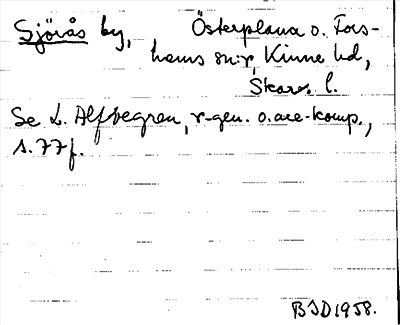 Sjörås by, Österplana o. Fors-
hems sn:r, Kinne hd,
Skarab. l.
Se L. Alfvegren, r-gen. o. are-komp.,
s. 77 f.
BSD 1958.